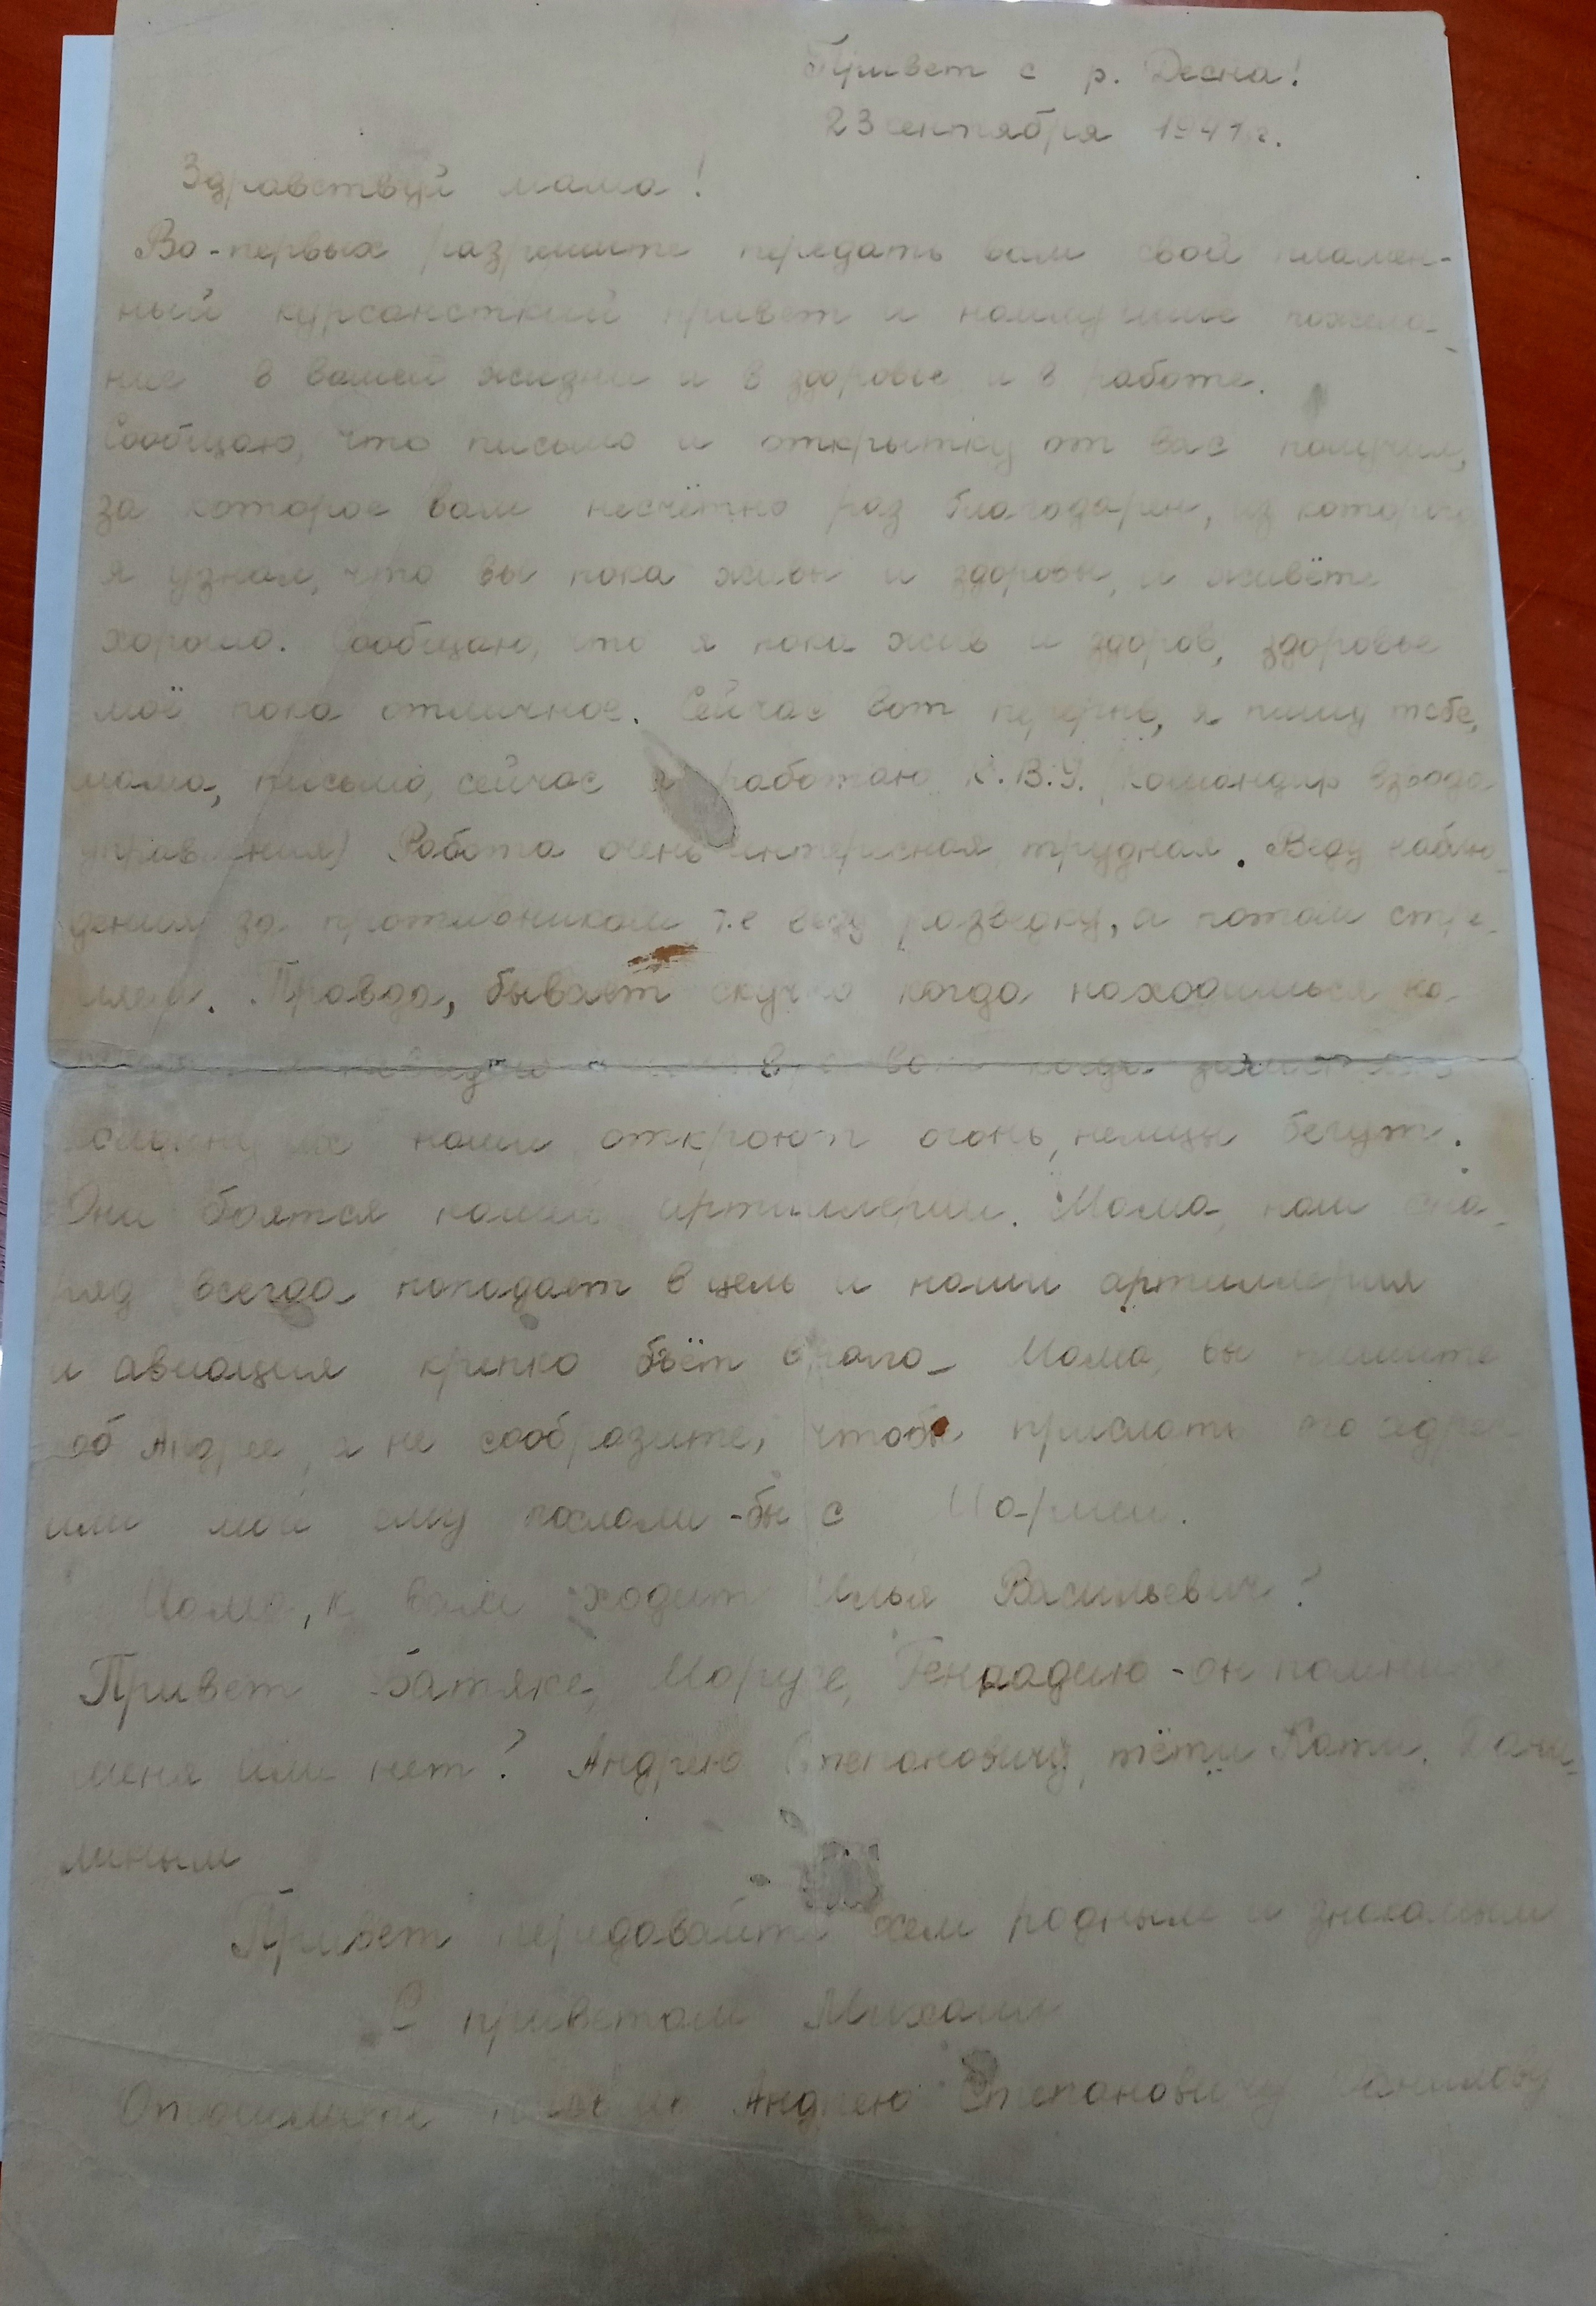 Привет с р. Десна!
23 сентября 1941 г.
Здравствуй мама!
Во-первых разрешите передать вам свой пламен-
ный курсансткий привет и наилучшие пожела-
ние в вашей жизни и в здоровье и в работе.
Сообщаю, что письмо и открытку от вас получил,
за которое вам несчётно раз благодарен, из которого
я узнал, что вы пока живы и здоровы, и живёте
хорошо. Сообщаю, что я пока жив и здоров, здоровье
моё пока отличное. Сейчас вот я пишу тебе,
мама, письмо, сейчас я работаю К.В.У. (Командир взвода
управления) Работа очень интересная, трудная. Веду наблю-
дения за противником т.е веду разведку, а потом стре-
ляем. Правда, бывает скучно когда находишься
когда
наши откроют огонь, немцы бегут.
Они боятся нашей артиллерии. Мама, наш сна-
ряд всегда попадает в цель и наши артиллерия
и авиация крепко бьёт врага. Мама, вы пишите
об Андрее, а не сообразите, чтобы прислать его адрес
или мой ему послали-бы с
Мама, к вам ходит Илья Васильевич?
Привет Батяке, Марусе, Геннадию - он помнит
меня или нет? Андрею Степановичу, тёти Кати, Дани-
линым
Привет передавайте всем родным и знакомым
С приветом Михаил
Андрею Степановичу Данилову